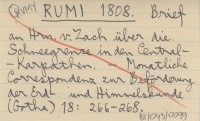 RUMI 1808. Brief
an Hrn. v. Zach über die
Schneegrenze in den Central-
Karpathen. Monatliche
Correspondenz zur Beförderung
der Erd- und Himmelskunde
(Gotha) 18: 266-268.